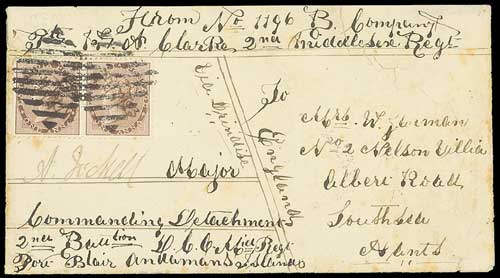 From No 1196 B. Company
Pte Clarke 2nd Middlesex Regt
Via Brindisi
England
To
Mrs. W.
No 2 Nelson Villia
Albert Road
Southsea
Hants
Major
Commanding Detachment
2nd Battion D.C.O. Mid Regt
Port Blair Andamans Islands